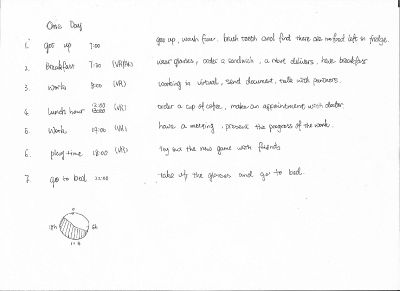 One Day
1. get up 7:00 get up, wash face, brush tooth and find there are no food left in fridge.
2. Breakfast 7:30 (VR/AR) wear glasses, order a sandwich, a robot delivers, have breakfast
3. work 8:00 (VR) working in virtual, send document, talk with partners.
4. lunch hour 12:00 (VR) order a cup of coffee, make an appointment with doctor
5. Work 14:00 (VR) have a meeting, present the progress of the work.
6. play time 18:00 (VR) Try out the new game with friends
7. go to bed 22:00 take off the glasses and go to bed.
0
18h 6h